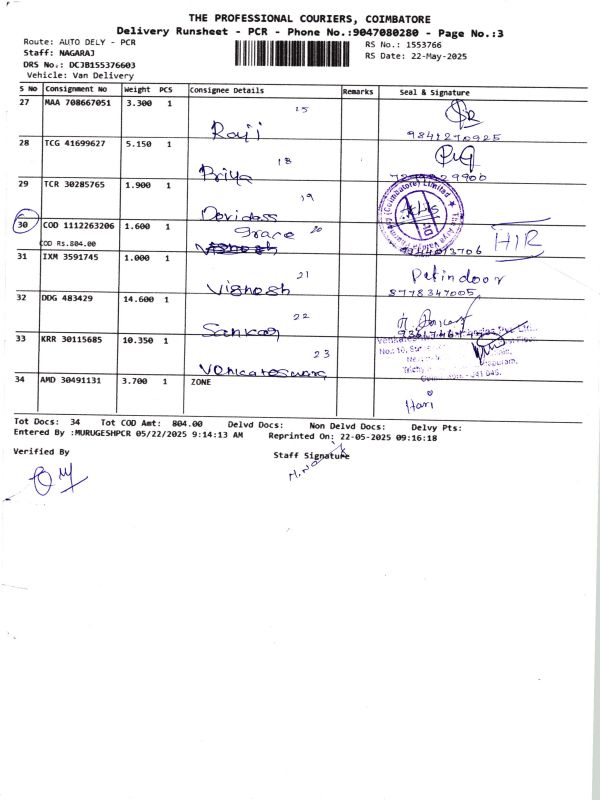 THE PROFESSIONAL COURIERS, COIMBATORE
Delivery Runsheet - PCR - Phone No.:9047080280 - Page No.:3
Route: AUTO DELY - PCR
RS No.: 1553766
Staff: NAGARAJ
RS Date: 22-May-2025
DRS No.: DCJB155376603
Vehicle: Van Delivery
S No Consignment No Weight PCS Consignee Details Remarks Seal & Signature
27 MAA 708667051 3.300 1 15
Raji 9841270925
28 TCG 41699627 5.150 1 18
Priya
29 TCR 30285765 1.900 1 19
Devidass
30 COD 1112263206 1.600 1 grace 20 HIR
COD Rs.804.00
31 IXM 3591745 1.000 1 21
Vignesh 8778347005
32 DDG 483429 14.600 1 22
Sankar
33 KRR 30115685 10.350 1 23
34 AMD 30491131 3.700 1 ZONE
Hari
Tot Docs: 34 Tot COD Amt: 804.00 Delvd Docs: Non Delvd Docs: Delvy Pts:
Entered By :MURUGESHPCR 05/22/2025 9:14:13 AM Reprinted On: 22-05-2025 09:16:18
Verified By Staff Signature